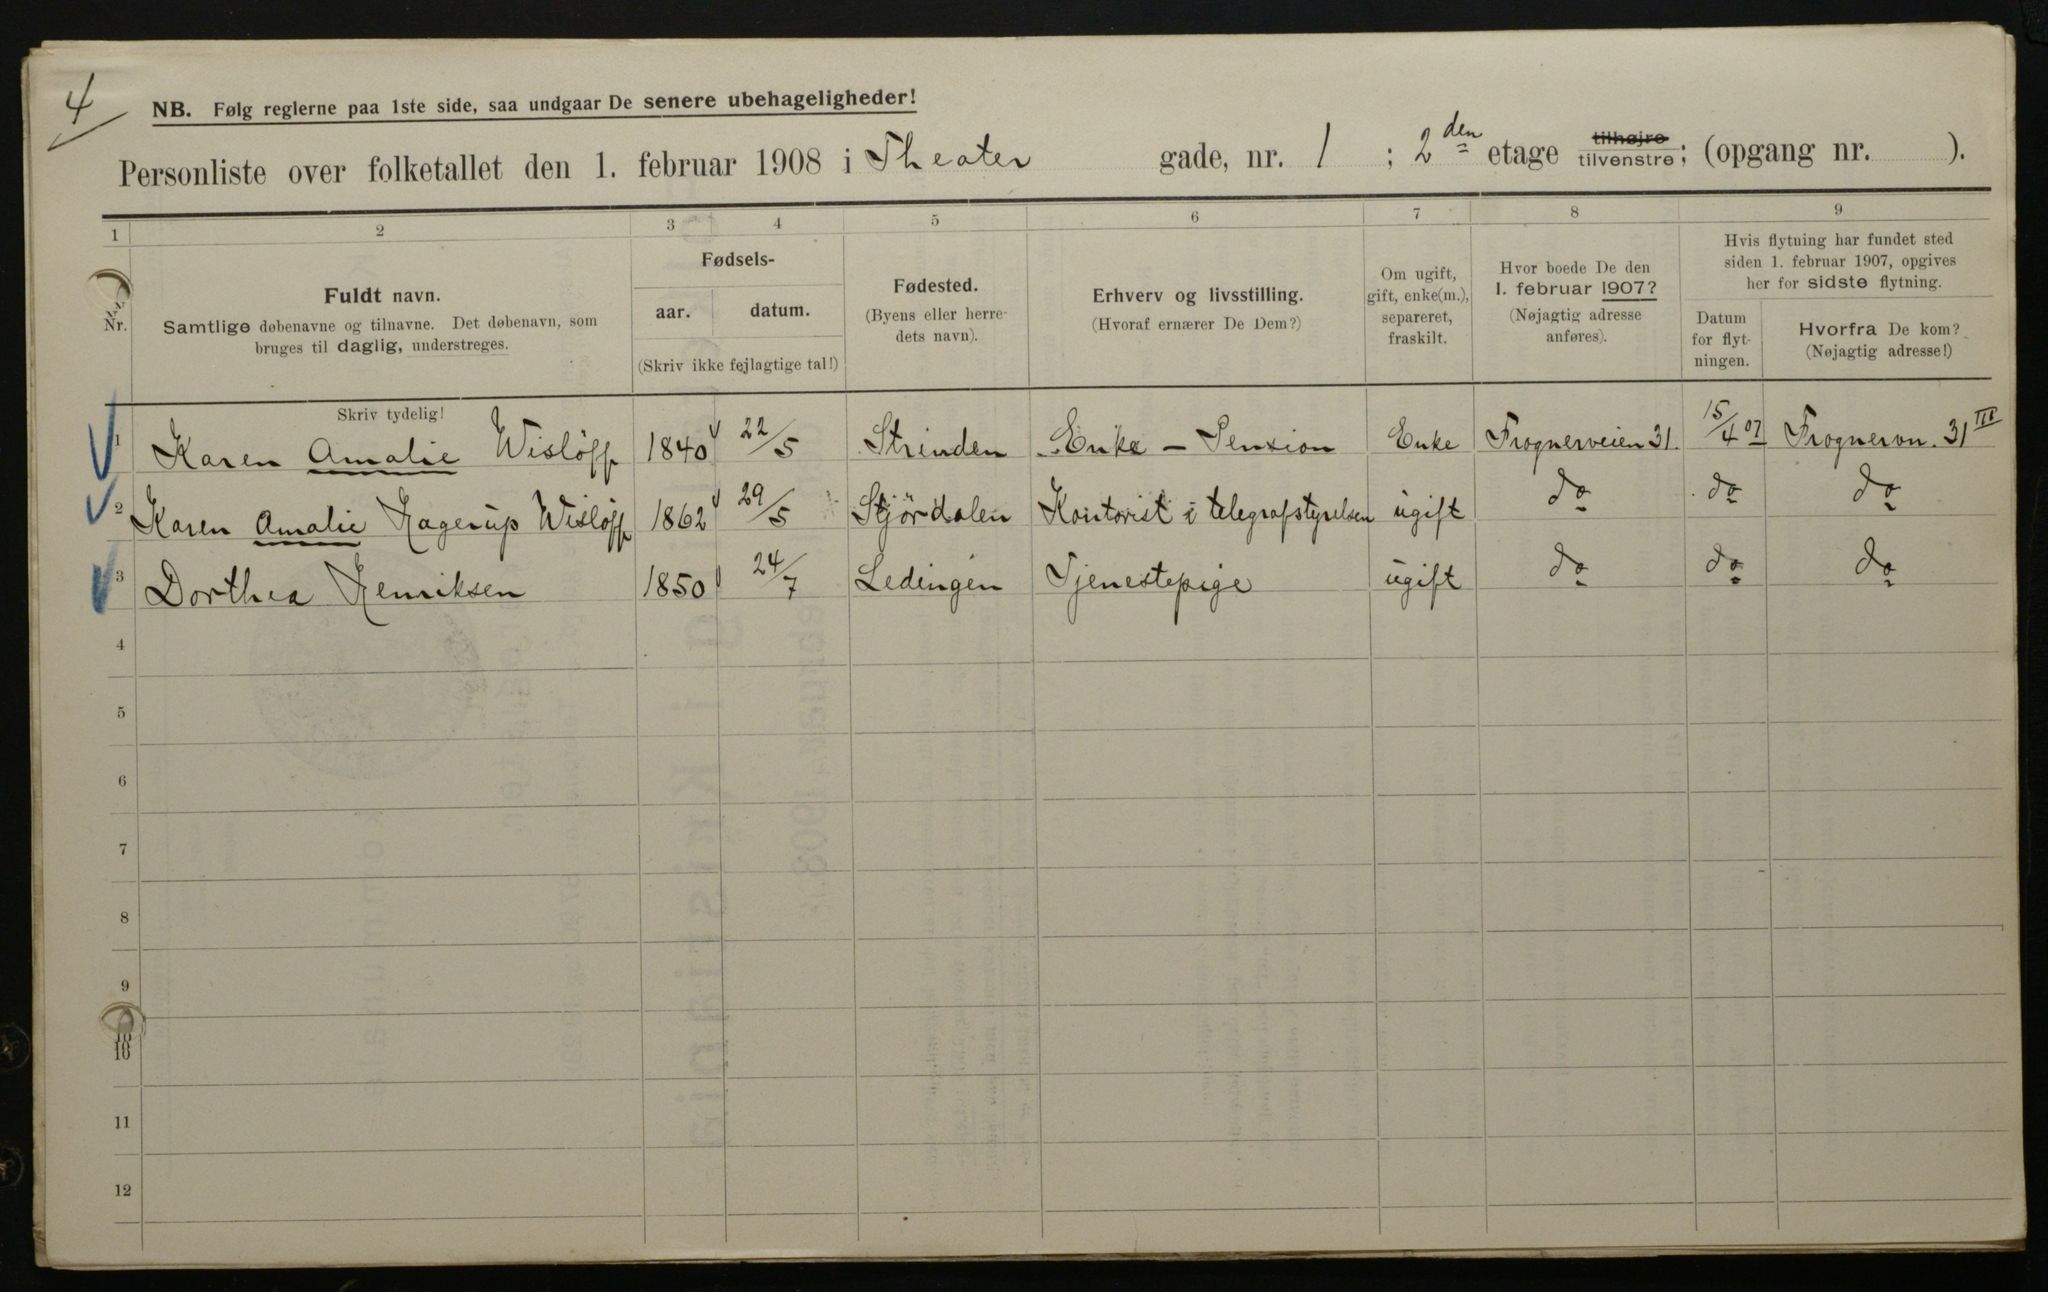 4
NB. Følg reglerne paa 1ste side, saa undgaar De senere ubehageligheder!
Personliste over folketallet den 1. februar 1908 i Theater gade, nr. 1 ; 2den etage tilhøjre tilvenstre; (opgang nr. ).
1 2 3 4 5 6 7 8 9
Nr.
Fuldt navn.
Samtlige døbenavne og tilnavne. Det døbenavn, som
bruges til daglig, understreges.
Fødsels-
aar. datum.
(Skriv ikke fejlagtige tal!)
Fødested.
(Byens eller herre-
dets navn).
Erhverv og livsstilling.
(Hvoraf ernærer De Dem?)
Om ugift,
gift, enke(m.),
separeret,
fraskilt.
Hvor boede De den
1. februar 1907?
(Nøjagtig adresse
anføres).
Hvis flytning har fundet sted
siden 1. februar 1907, opgives
her for sidste flytning.
Datum
for flyt-
ningen.
Hvorfra De kom?
(Nøjagtig adresse!)
Skriv tydelig!
1 Karen Amalie Wisløff 1840 22/5 Strinden Enke – Pension Enke Frognerveien 31. 15/4 07 Frognervn. 31 III
2 Karen Amalie Hagerup Wisløff 1862 29/5 Stjørdalen Kontorist i telegrafstyrelsen ugift do do do
3 Dorthea Henriksen 1850 24/7 Lødingen Tjenestepige ugift do do do
4
5
6
7
8
9
10
10
11
12